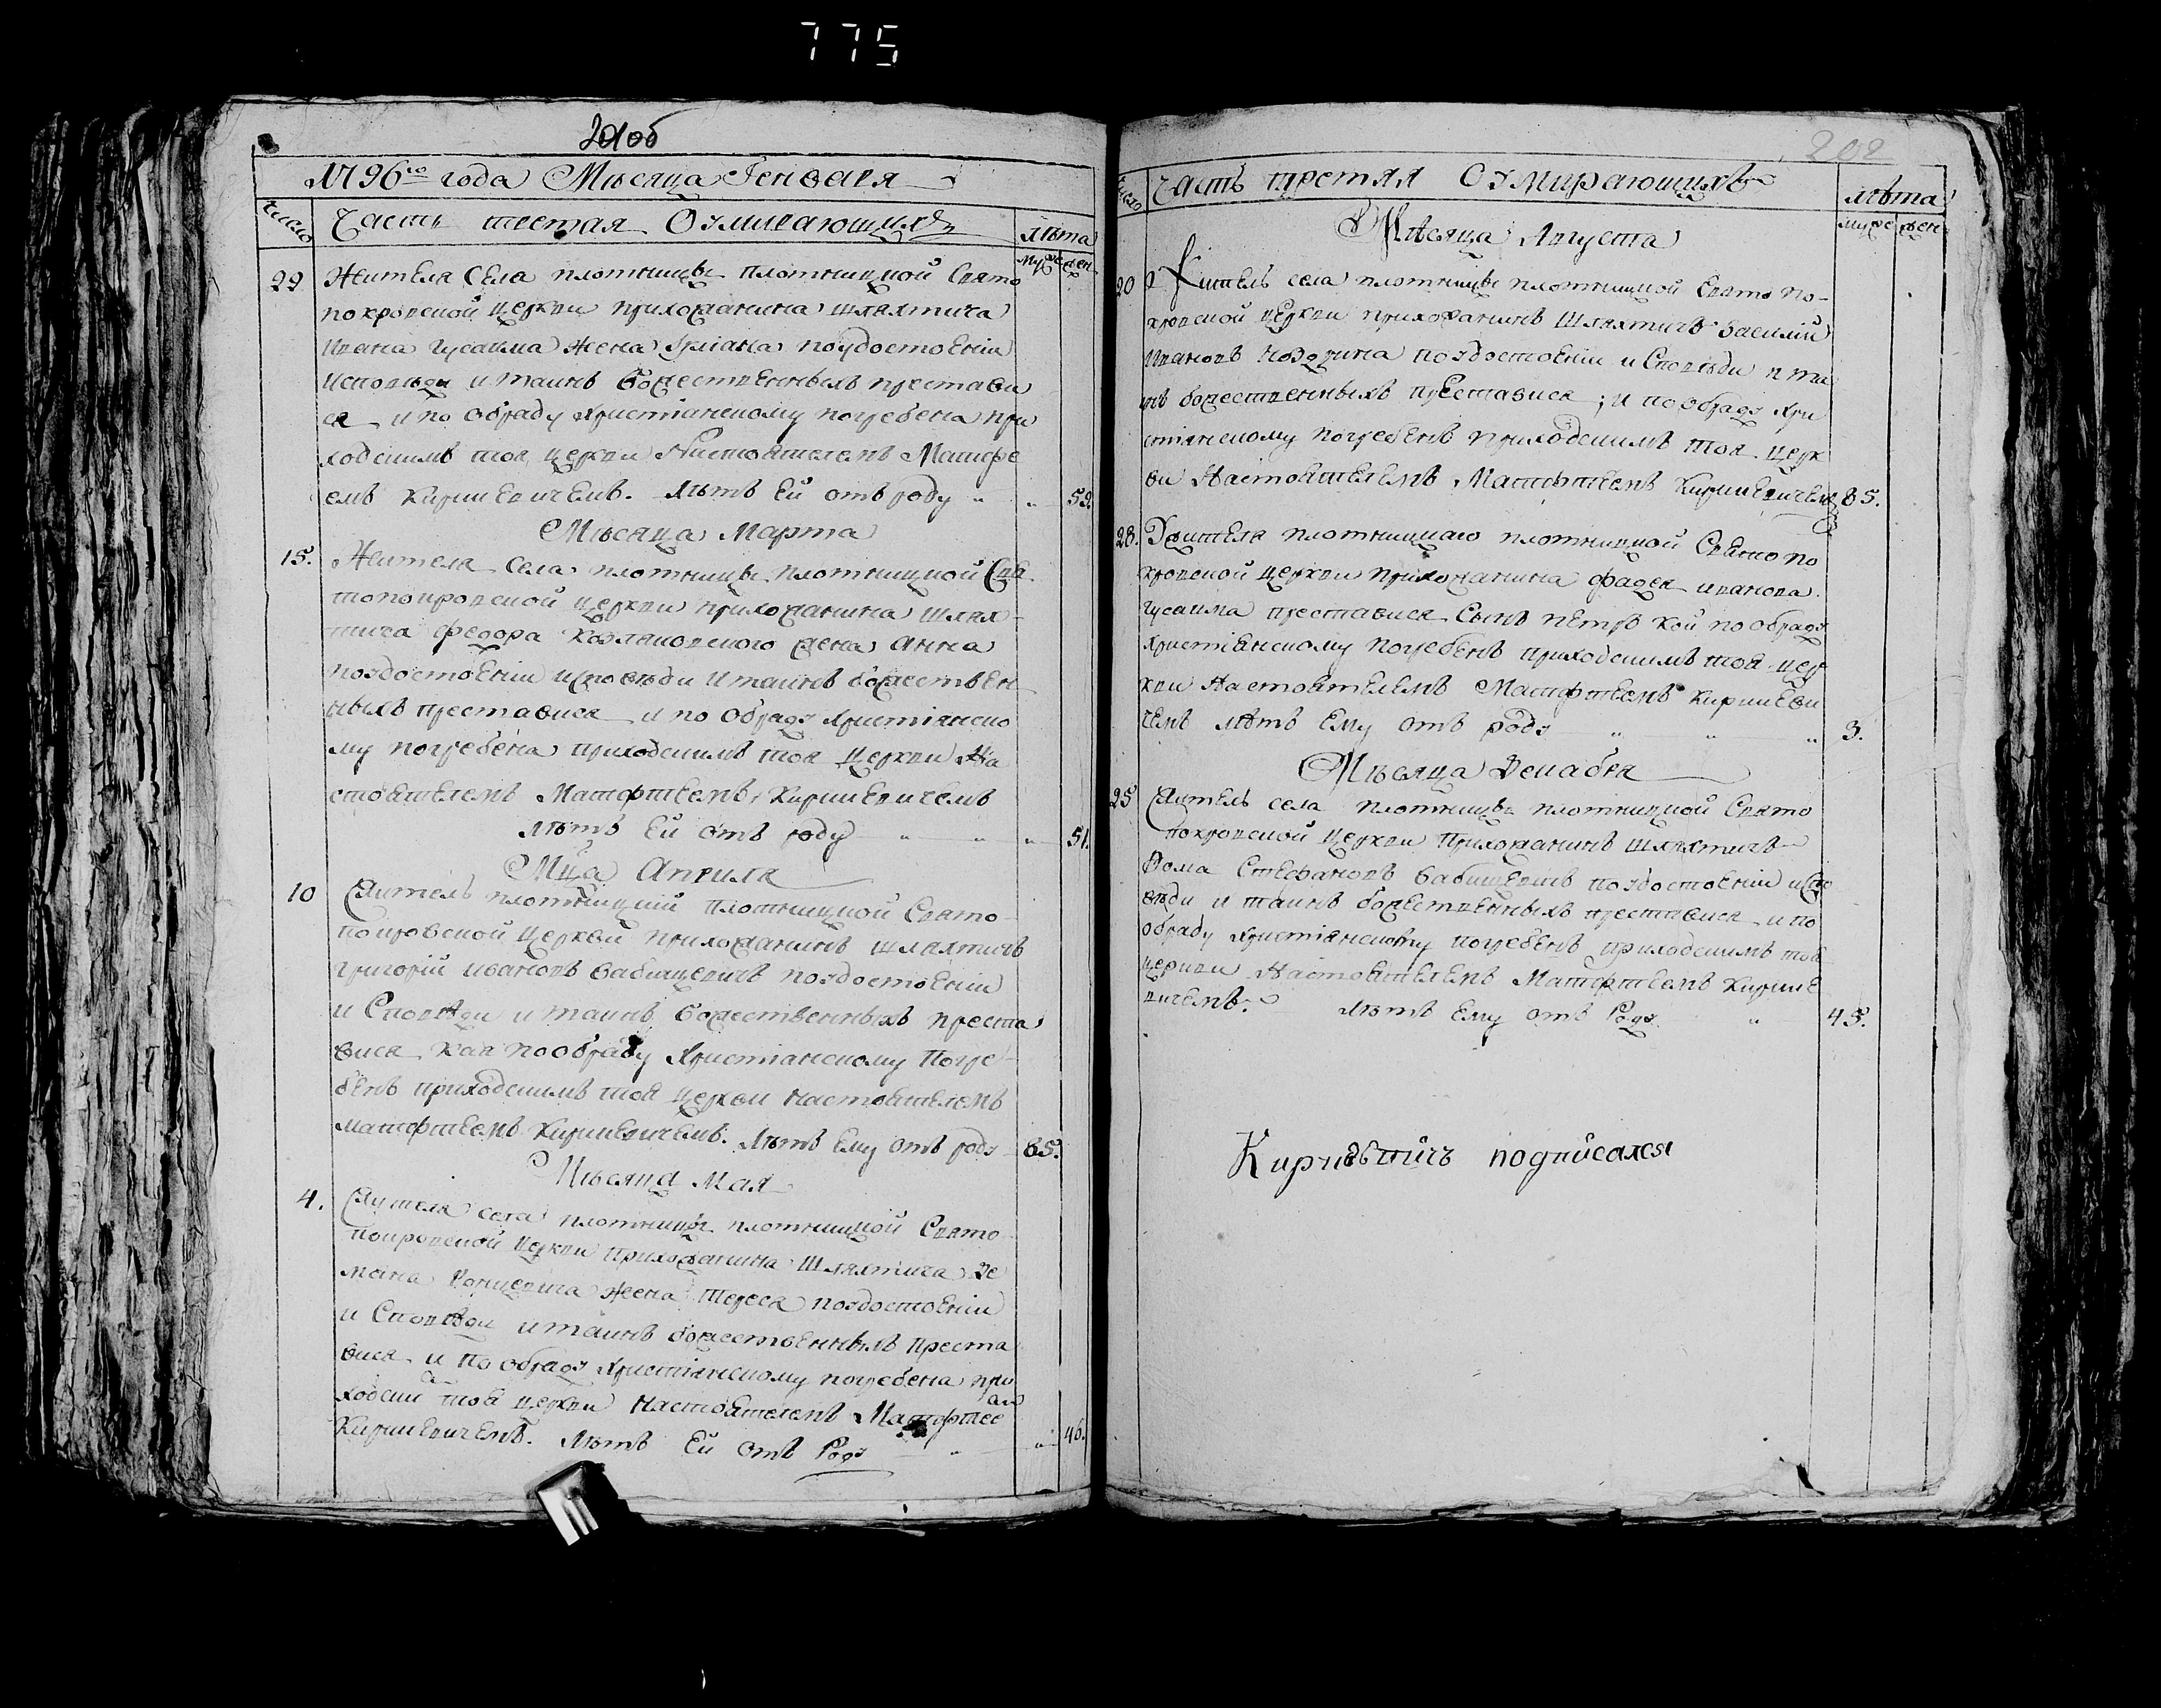 775
201об
1796го года Мѣсяца Генваря
число
Часть третая Оумирающихъ
лѣта
муже
жен
29 Жителя Села плотницы плотницкой Свято
покровской церкви прихожанина шляхтича
Ивана Гусаима жена Уліана поудостоеніи
исповѣди и таинъ божественныхъ престави
ся и по обраду христіанскому погребена при
ходскимъ тоя церкви Настоятелемъ Матфе
емъ Кирикевичемъ. Лѣтъ Ей отъ роду 59.
Мѣсяца Марта
15. Жителя Села плотницы плотницкой Свя
топокровской церкви прихожанина шлях-
тича федора жена анна
поудостоеніи исповѣди и таинъ божествен
ныхъ преставися и по обраду христіанско
му погребена приходскимъ тоя церкви На
стоятелемъ Матфтеемъ Кирикевичемъ
лѣтъ Ей отъ роду 51.
Мца Априля
10 Житель плотницкій плотницкой Свято
покровской Церкви прихожанинъ шляхтичъ
григорій ивановъ бабищевичъ поудостоеніи
и Сповѣди и таинъ божественныхъ преста
вися кая пообраду христіанскому погре
бенъ приходскимъ тоя церкви настоятелемъ
матфтеемъ Кирикевичемъ. лѣтъ Ему отъ роду 85.
Мѣсяца мая
4. Жителя села плотницы плотницкой Свято
покровской Церкви прихожанина шляхтича Де
мяна жена тереса поудостоеніи
и Сповѣди и таинъ божественныхъ преста
вися и по обраду христіанскому погребена при
ходски тоя церкви настоятелемъ Матфтее
Кирикевичемъ. Лѣтъ Ей отъ Роду 46.
202
число
Часть третяя Оумирающихъ
лѣта
муже
жен
Мѣсяца Августа
20 Житель села плотницы плотницкой Свято по-
кровской церкви прихожанинъ шляхтичъ василій
Ивановъ поудостоеніи и Сповѣди и таи
нъ божественныхъ преставися; и по обраду хри
стіянскому погребенъ приходскимъ тоя церк
ви Настоятелемъ Матфтеемъ Кирикевичемъ 85.
28. Жителя плотницкаго плотницкой Свято по
кровской церкви прихожанина фадея иванова
гусаима преставися Сынъ петръ кой по обраду
христіанскому погребенъ приходскимъ тоя цер
кви Настоятелемъ Матфтеемъ Кирикеви
чемъ лѣтъ Ему отъ роду 3.
Мѣсяца Декабря
25 Житель села плотницы плотницкой Свято
покровской церкви прихожанинъ шляхтичъ
Фома Стефановъ бабищевичъ поудостоеніи испо
вѣди и таинъ божественныхъ преставися и по
обраду христіанскому погребенъ приходскимъ тоя
церкви Настоятелемъ Матфтеемъ Кирике
вичемъ. Лѣтъ Ему отъ Роду 45.
Кирикѣвичъ подписался